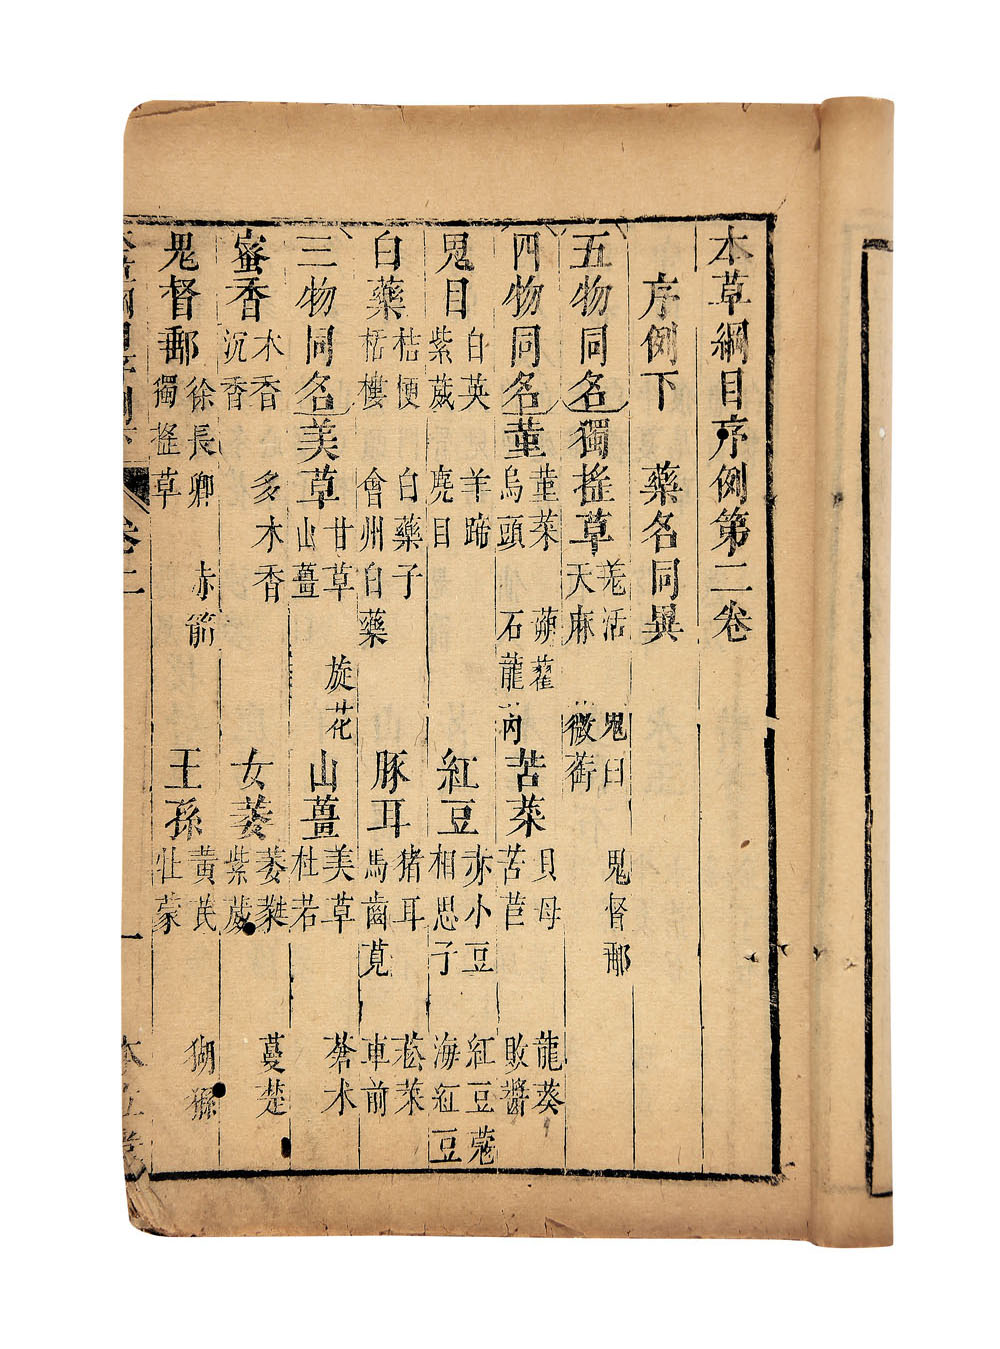 本草綱目序例第二卷
序例下　藥名同異
五物同名　獨搖草　羌活　鬼臼　鬼督郵
天麻　薇蘅
四物同名　堇　堇菜　蒴藋　苦菜　貝母　龍葵
烏頭　石龍芮　苦苣　敗醬
鬼目　白英　羊蹄　紅豆　赤小豆　紅豆蔻
紫葳　麂目　相思子　海紅豆
白藥　桔梗　白藥子　豚耳　猪耳　菘菜
栝樓　會州白藥　馬齒莧　車前
三物同名　美草　甘草　旋花　山薑　美草　蒼朮
山薑　杜若
蜜香　木香　多木香　女萎　萎蕤　蔓楚
沉香　紫葳
鬼督郵　徐長卿　赤箭　王孫　黄芪　猢猻
獨搖草　牡蒙
卷二
一